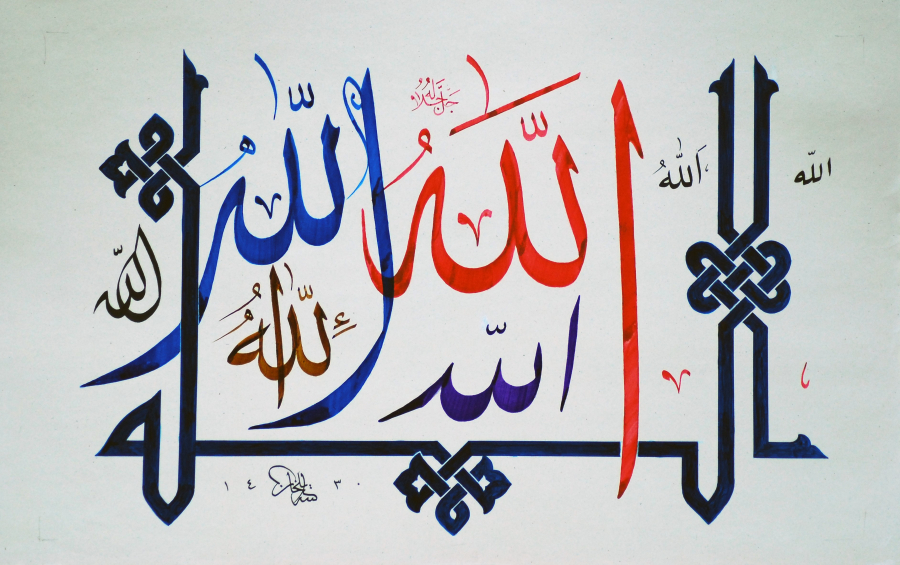 الله
الله
الله
جل جلاله
الله
الله
الله
الله
الله
١٤٣٠